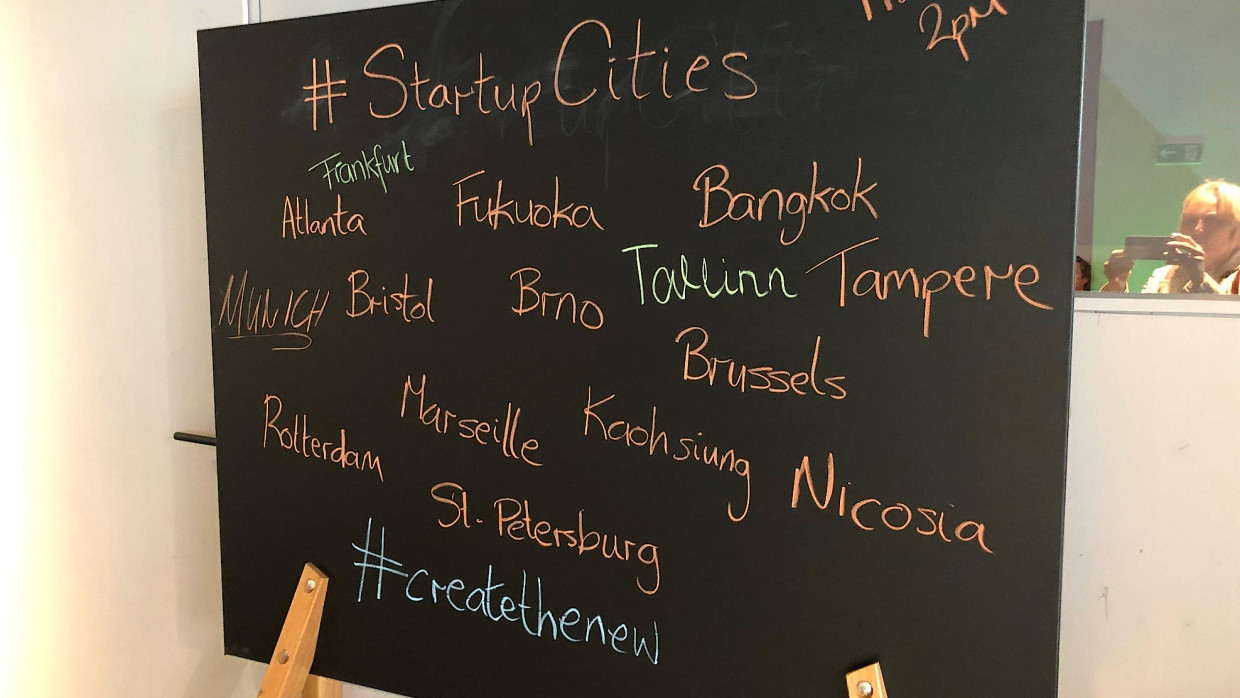 2pm
#StartupCities
Frankfurt
Atlanta Fukuoka Bangkok
MUNICH Bristol Brno Tallinn Tampere
Brussels
Rotterdam Marseille Kaohsiung Nicosia
St. Petersburg
#createthenew